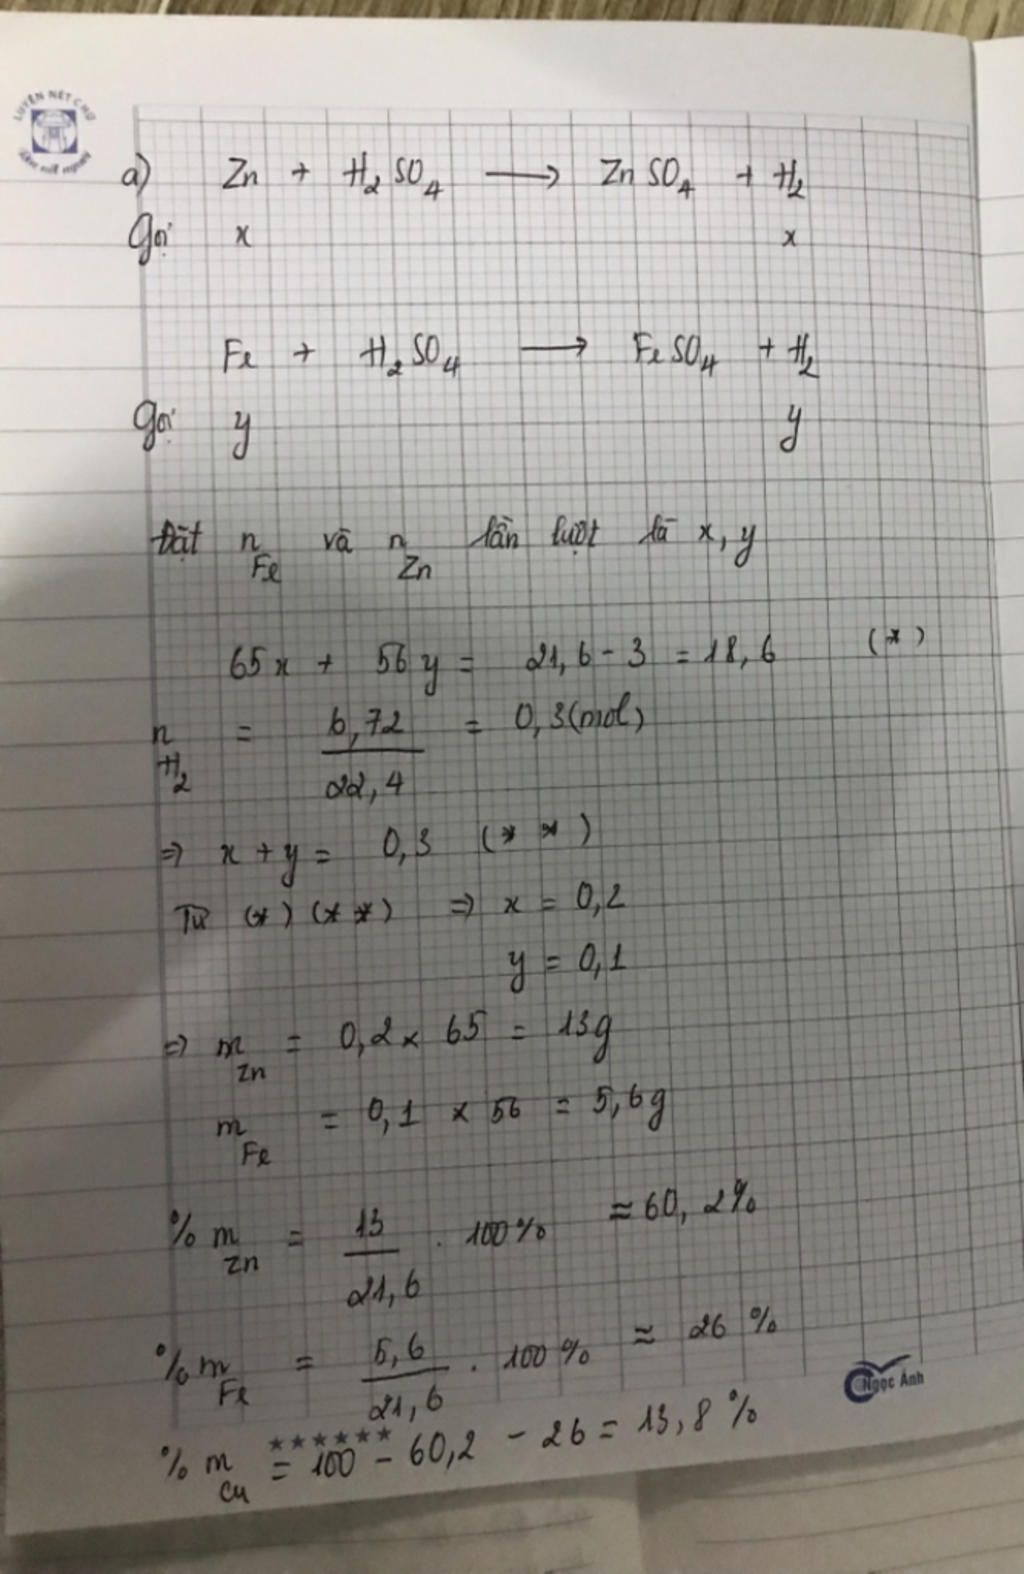 LUYỆN NÉT CHỮ
a) Zn + H₂SO₄ ⟶ ZnSO₄ + H₂
Gọi x x
Fe + H₂SO₄ ⟶ FeSO₄ + H₂
Gọi y y
Đặt n_Fe và n_Zn lần lượt là x, y
65x + 56y = 21,6 - 3 = 18,6 (*)
n_H₂ = 6,72 / 22,4 = 0,3 (mol)
⇒ x + y = 0,3 (**)
Từ (*) (**) ⇒ x = 0,2
y = 0,1
⇒ m_Zn = 0,2 × 65 = 13g
m_Fe = 0,1 × 56 = 5,6g
% m_Zn = 13 / 21,6 . 100% ≈ 60,2%
% m_Fe = 5,6 / 21,6 . 100% ≈ 26 %
Ngọc Ánh
★★★★★★
% m_Cu = 100 - 60,2 - 26 = 13,8 %